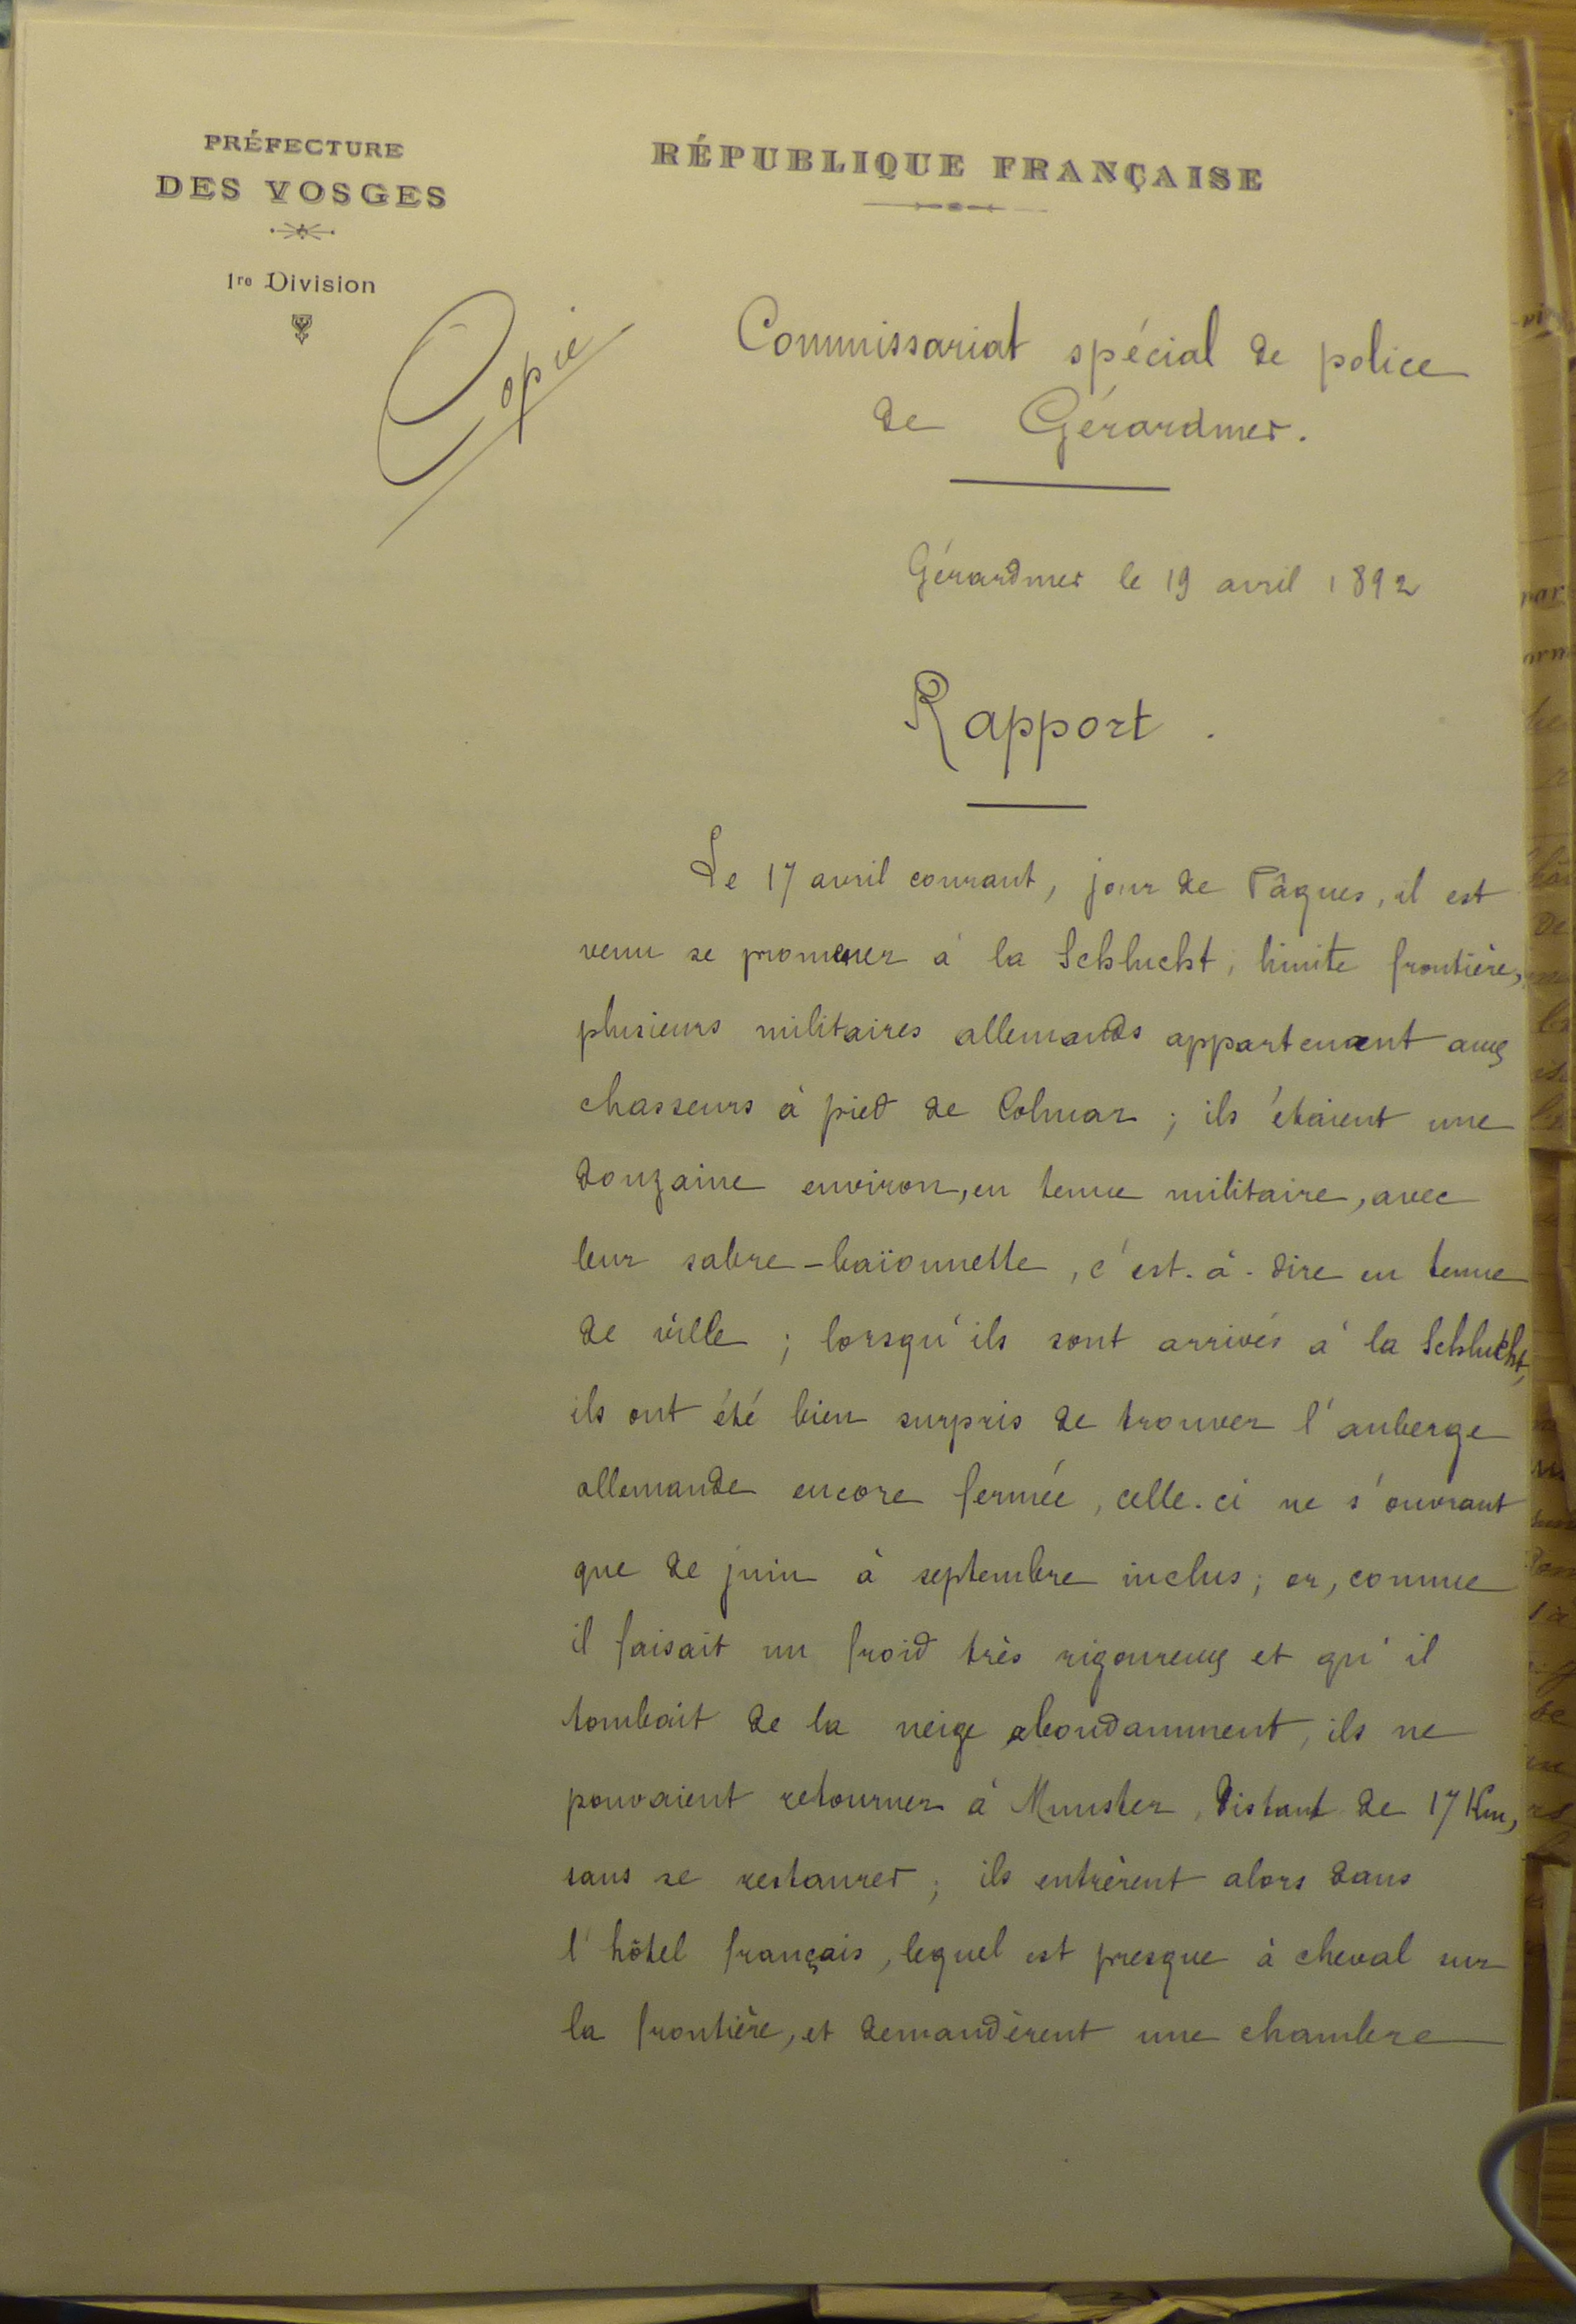 PRÉFECTURE
DES VOSGES
1re Division
RÉPUBLIQUE FRANÇAISE
Copie
Commissariat spécial de police
de Gérardmer.
Gérardmer le 19 avril 1892
Rapport.
Le 17 avril courant, jour de Pâques, il est
venu se promener à la Schlucht, limite frontière,
plusieurs militaires allemands appartenant aux
chasseurs à pied de Colmar ; ils étaient une
douzaine environ, en tenue militaire, avec
leur sabre-baïonnette, c'est-à-dire en tenue
de ville ; lorsqu'ils sont arrivés à la Schlucht,
ils ont été bien surpris de trouver l'auberge
allemande encore fermée, celle-ci ne s'ouvrant
que de juin à septembre inclus ; or, comme
il faisait un froid très rigoureux et qu'il
tombait de la neige abondamment, ils ne
pouvaient retourner à Munster, distant de 17 Km,
sans se restaurer ; ils entrèrent alors dans
l'hôtel français, lequel est presque à cheval sur
la frontière, et demandèrent une chambre